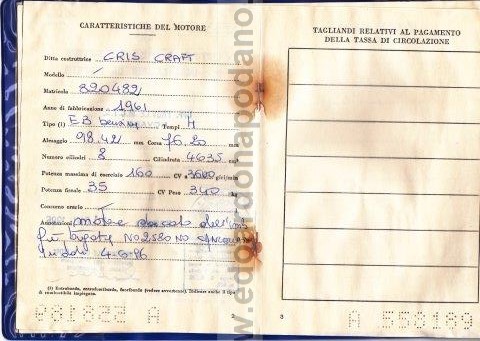 CARATTERISTICHE DEL MOTORE
Ditta costruttrice CRIS CRAFT
Modello
Matricola 820482
Anno di fabbricazione 1961
Tipo (1) EB benzina Tempi 4
Alesaggio 98.42 mm Corsa 76.20 mm
Numero cilindri 8 Cilindrata 4635 cm³
Potenza massima di esercizio 160 CV a 3600 giri/min
Potenza fiscale 35 CV Peso 340 kg
Consumo orario
Annotazioni motore
fu targata NO2580NO
4-6-76
(1) Entrobordo, entrofuoribordo, fuoribordo (vedere avvertenze). Indicare anche il tipo
di combustibile impiegato.
2
A 558189
TAGLIANDI RELATIVI AL PAGAMENTO
DELLA TASSA DI CIRCOLAZIONE
3
A 558189
www.edonapodano